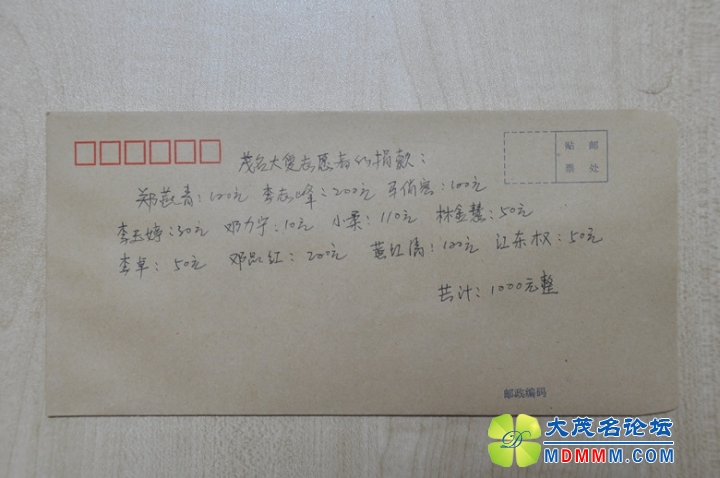 茂名大爱志愿者的捐款：
郑燕青：100元 李志峰：200元 100元
李玉婷：30元 邓力宁：10元 小柔：110元 林金慧：50元
李卓：50元 邓 红：200元 黄红清：100元 江东权：50元
共计：1000元整
贴 邮
票 处
邮政编码
大茂名论坛
MDMMM.COM